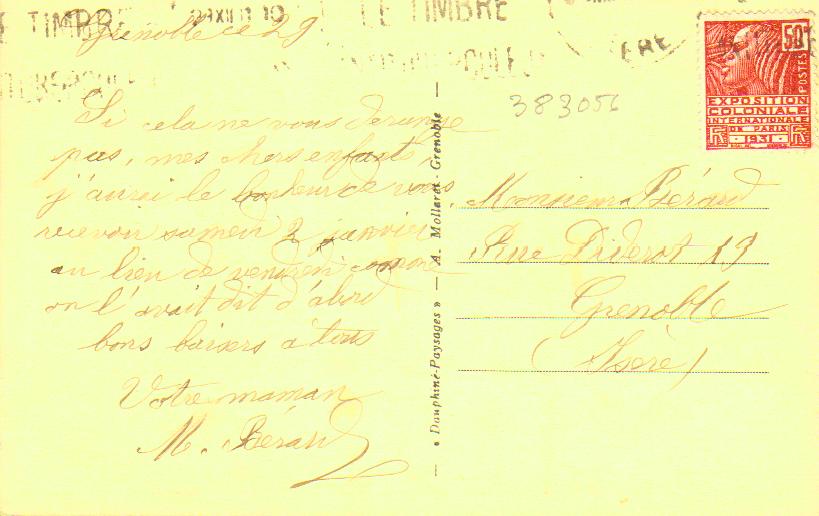 LE TIMBRE
LE TIMBRE
Grenoble ce 29
383056
50c
POSTES
EXPOSITION
COLONIALE
INTERNATIONALE
DE PARIS
1931
Si cela ne vous derange
pas, mes chers enfants,
j'aurai le bonheur de vous
recevoir samedi 2 janvier
au lieu de vendredi comme
on l'avait dit d'abord
bons baisers à tous
Votre maman
M. Bérard
« Dauphiné-Paysages » — A. Mollaret - Grenoble —
Monsieur Bérard
Rue Diderot 13
Grenoble
(Isère)